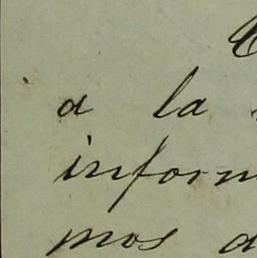 a la
inform
mos